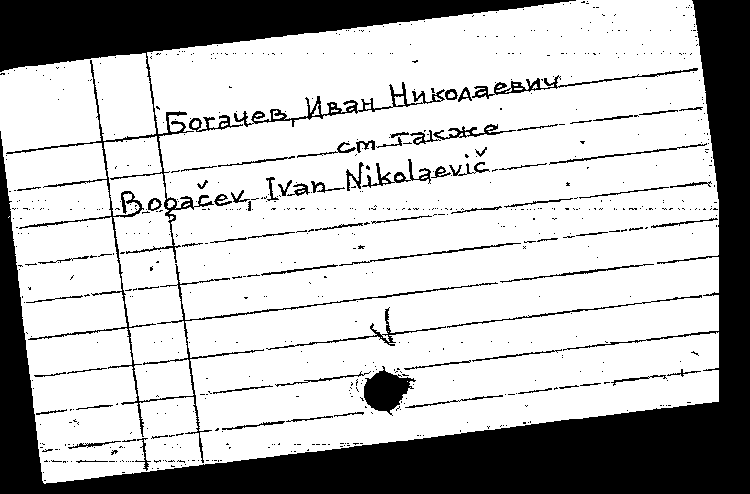 Богачев, Иван Николаевич
см. также
Bogačev, Ivan Nikolaevič